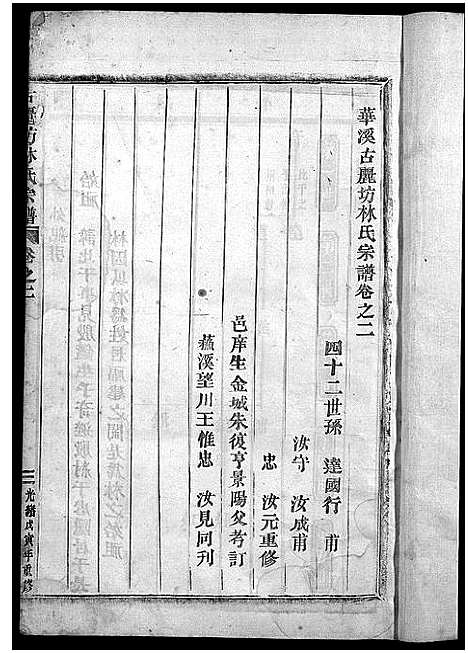 華溪古麗坊林氏宗譜卷之二
四十二世孫 達國行甫
汝守 汝成甫
忠 汝元重修
邑庠生金城朱復亨景陽父考訂
燕溪望川王惟忠 汝見同刊
古麗坊林氏宗譜
卷之二
光緒戊寅年重修